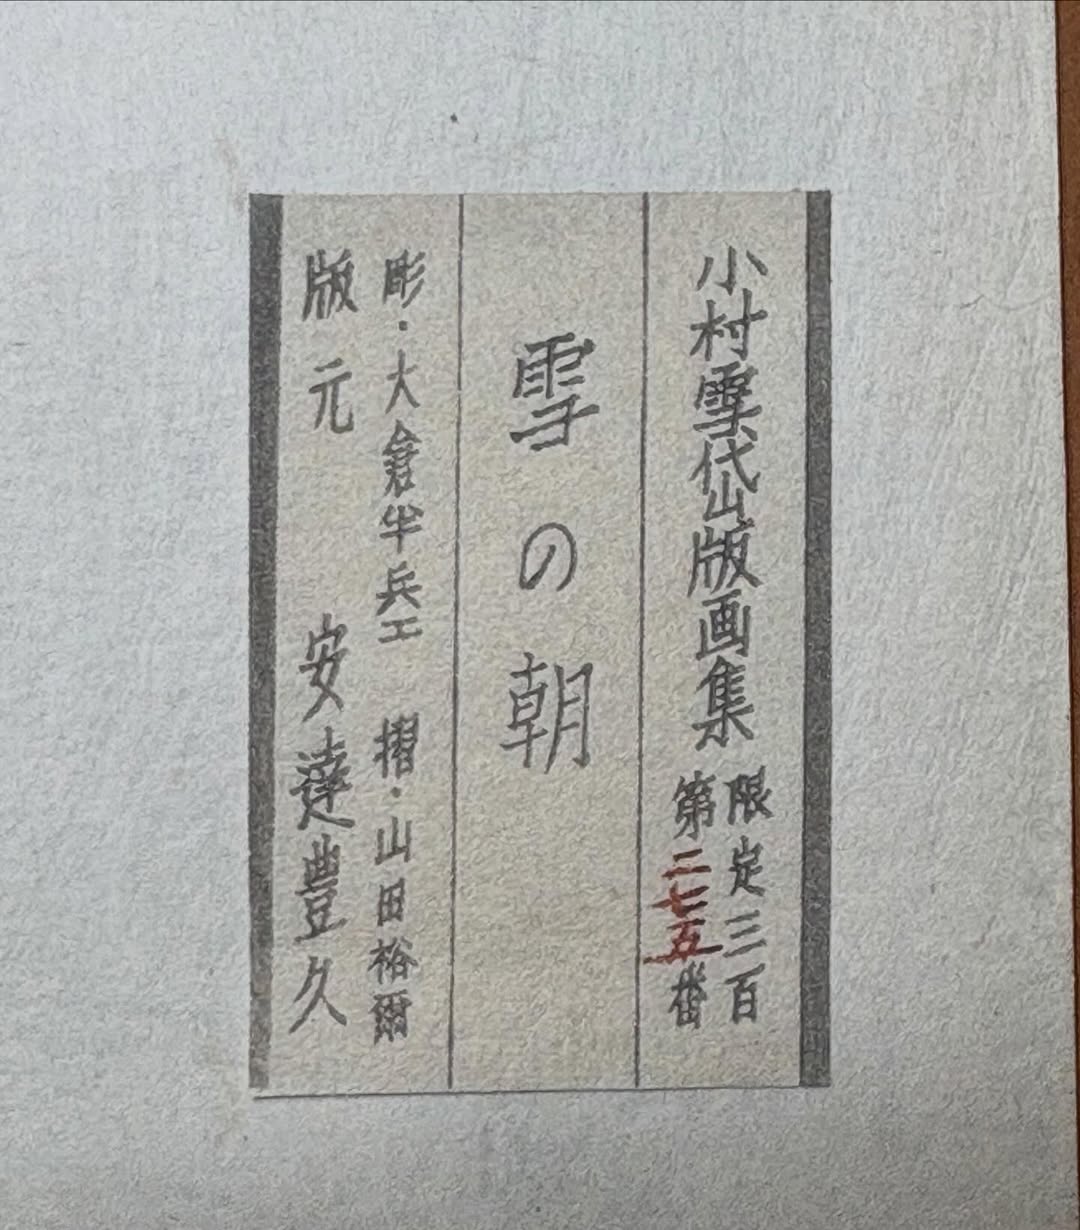 小村雪岱版画集
限定三百
第二七五番
雪の朝
彫・大倉半兵エ 摺・山田裕爾
版元 安達豊久